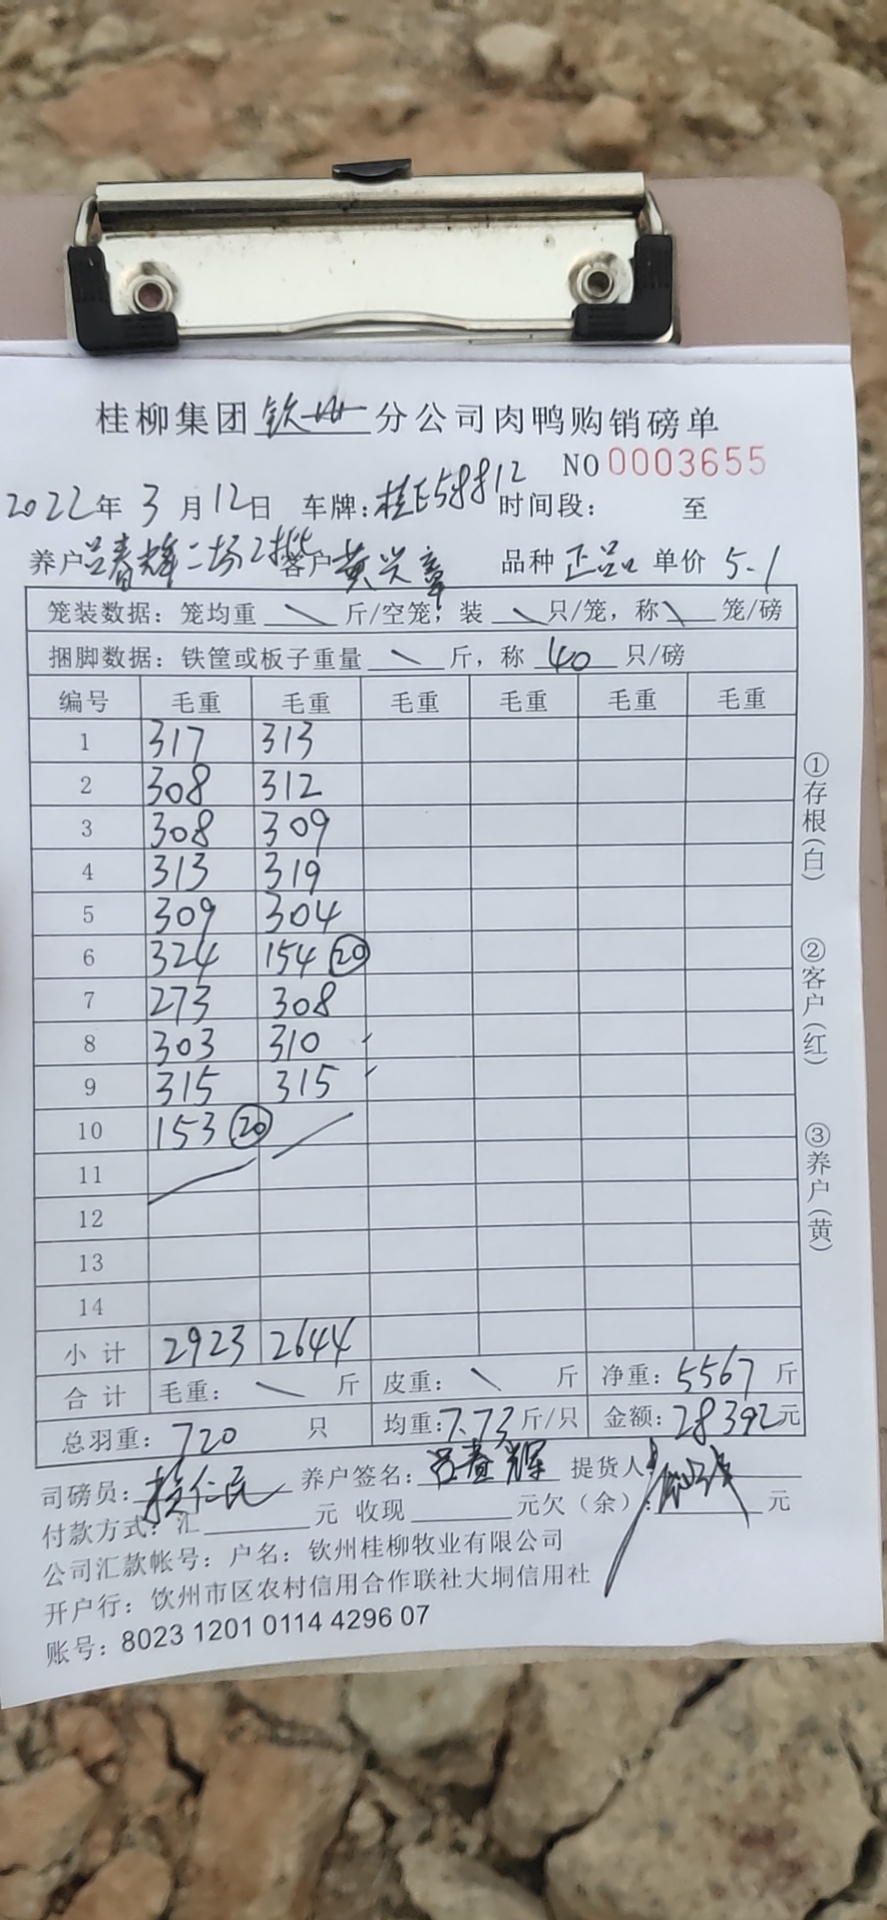 桂柳集团钦州分公司肉鸭购销磅单
NO 0003655
2022年 3月12日 车牌:桂E58812 时间段: 至
养户吕春辉二场2批 客户黄兴章 品种 正品 单价 5.1
笼装数据: 笼均重 \ 斤/空笼; 装 \ 只/笼, 称 \ 笼/磅
捆脚数据: 铁筐或板子重量 \ 斤, 称 40 只/磅
编号 毛重 毛重 毛重 毛重 毛重 毛重
1 317 313
2 308 312
3 308 309
4 313 319
5 309 304
6 324 154 ⑳
7 273 308
8 303 310
9 315 315
10 153 ⑳
11
12
13
14
小计 2923 2644
合计 毛重: \ 斤 皮重: \ 斤 净重: 5567 斤
总羽重: 720 只 均重: 7.73斤/只 金额: 28392元
司磅员: 养户签名: 吕春辉 提货人:
付款方式: 汇 元 收现 元欠(余): 元
公司汇款帐号: 户名: 钦州桂柳牧业有限公司
开户行: 钦州市区农村信用合作联社大垌信用社
账号: 8023 1201 0114 4296 07
①存根(白)
②客户(红)
③养户(黄)